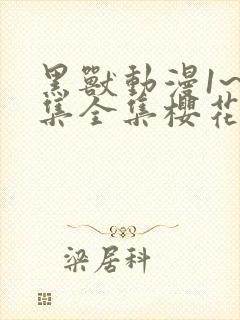 黑獸動漫1~
集全集櫻花
梁居科